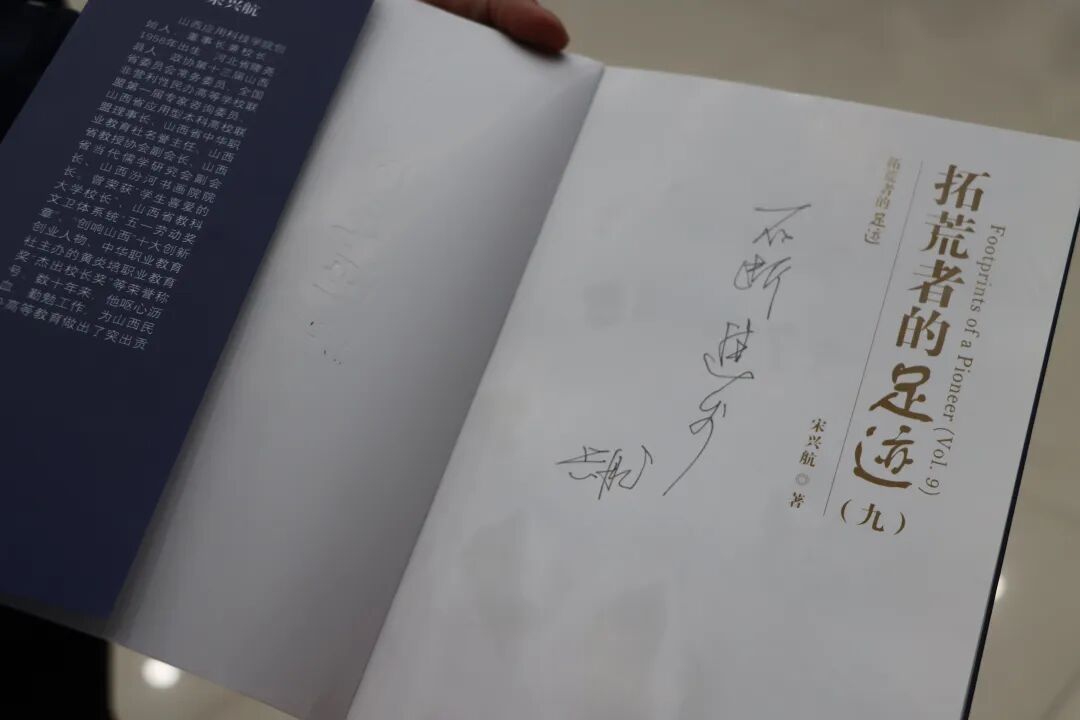 宋兴航
山西应用科技学院创
始人、董事长兼校长,
1958年出生,河北省隆尧
县人。政协第十三届山西
省委员会常务委员、全国
非营利性民办高等学校联
盟第一届专家咨询委员、
山西省应用型本科高校联
盟理事长、山西省中华职
业教育社名誉主任、山西
省教授协会副会长、山西
省当代儒学研究会副会
长、山西汾河书画院院
长。曾荣获“学生喜爱的
大学校长”、山西省教科
文卫体系统“五一劳动奖
章”、“创响山西”十大创新
创业人物、中华职业教育
社主办的黄炎培职业教育
奖“杰出校长奖”等荣誉称
号。数十年来,他呕心沥
血、勤勉工作,为山西民
办高等教育做出了突出贡
不断进步
兴航
拓荒者的足迹
拓荒者的足迹(九)
Footprints of a Pioneer (Vol. 9)
宋兴航 ◎ 著